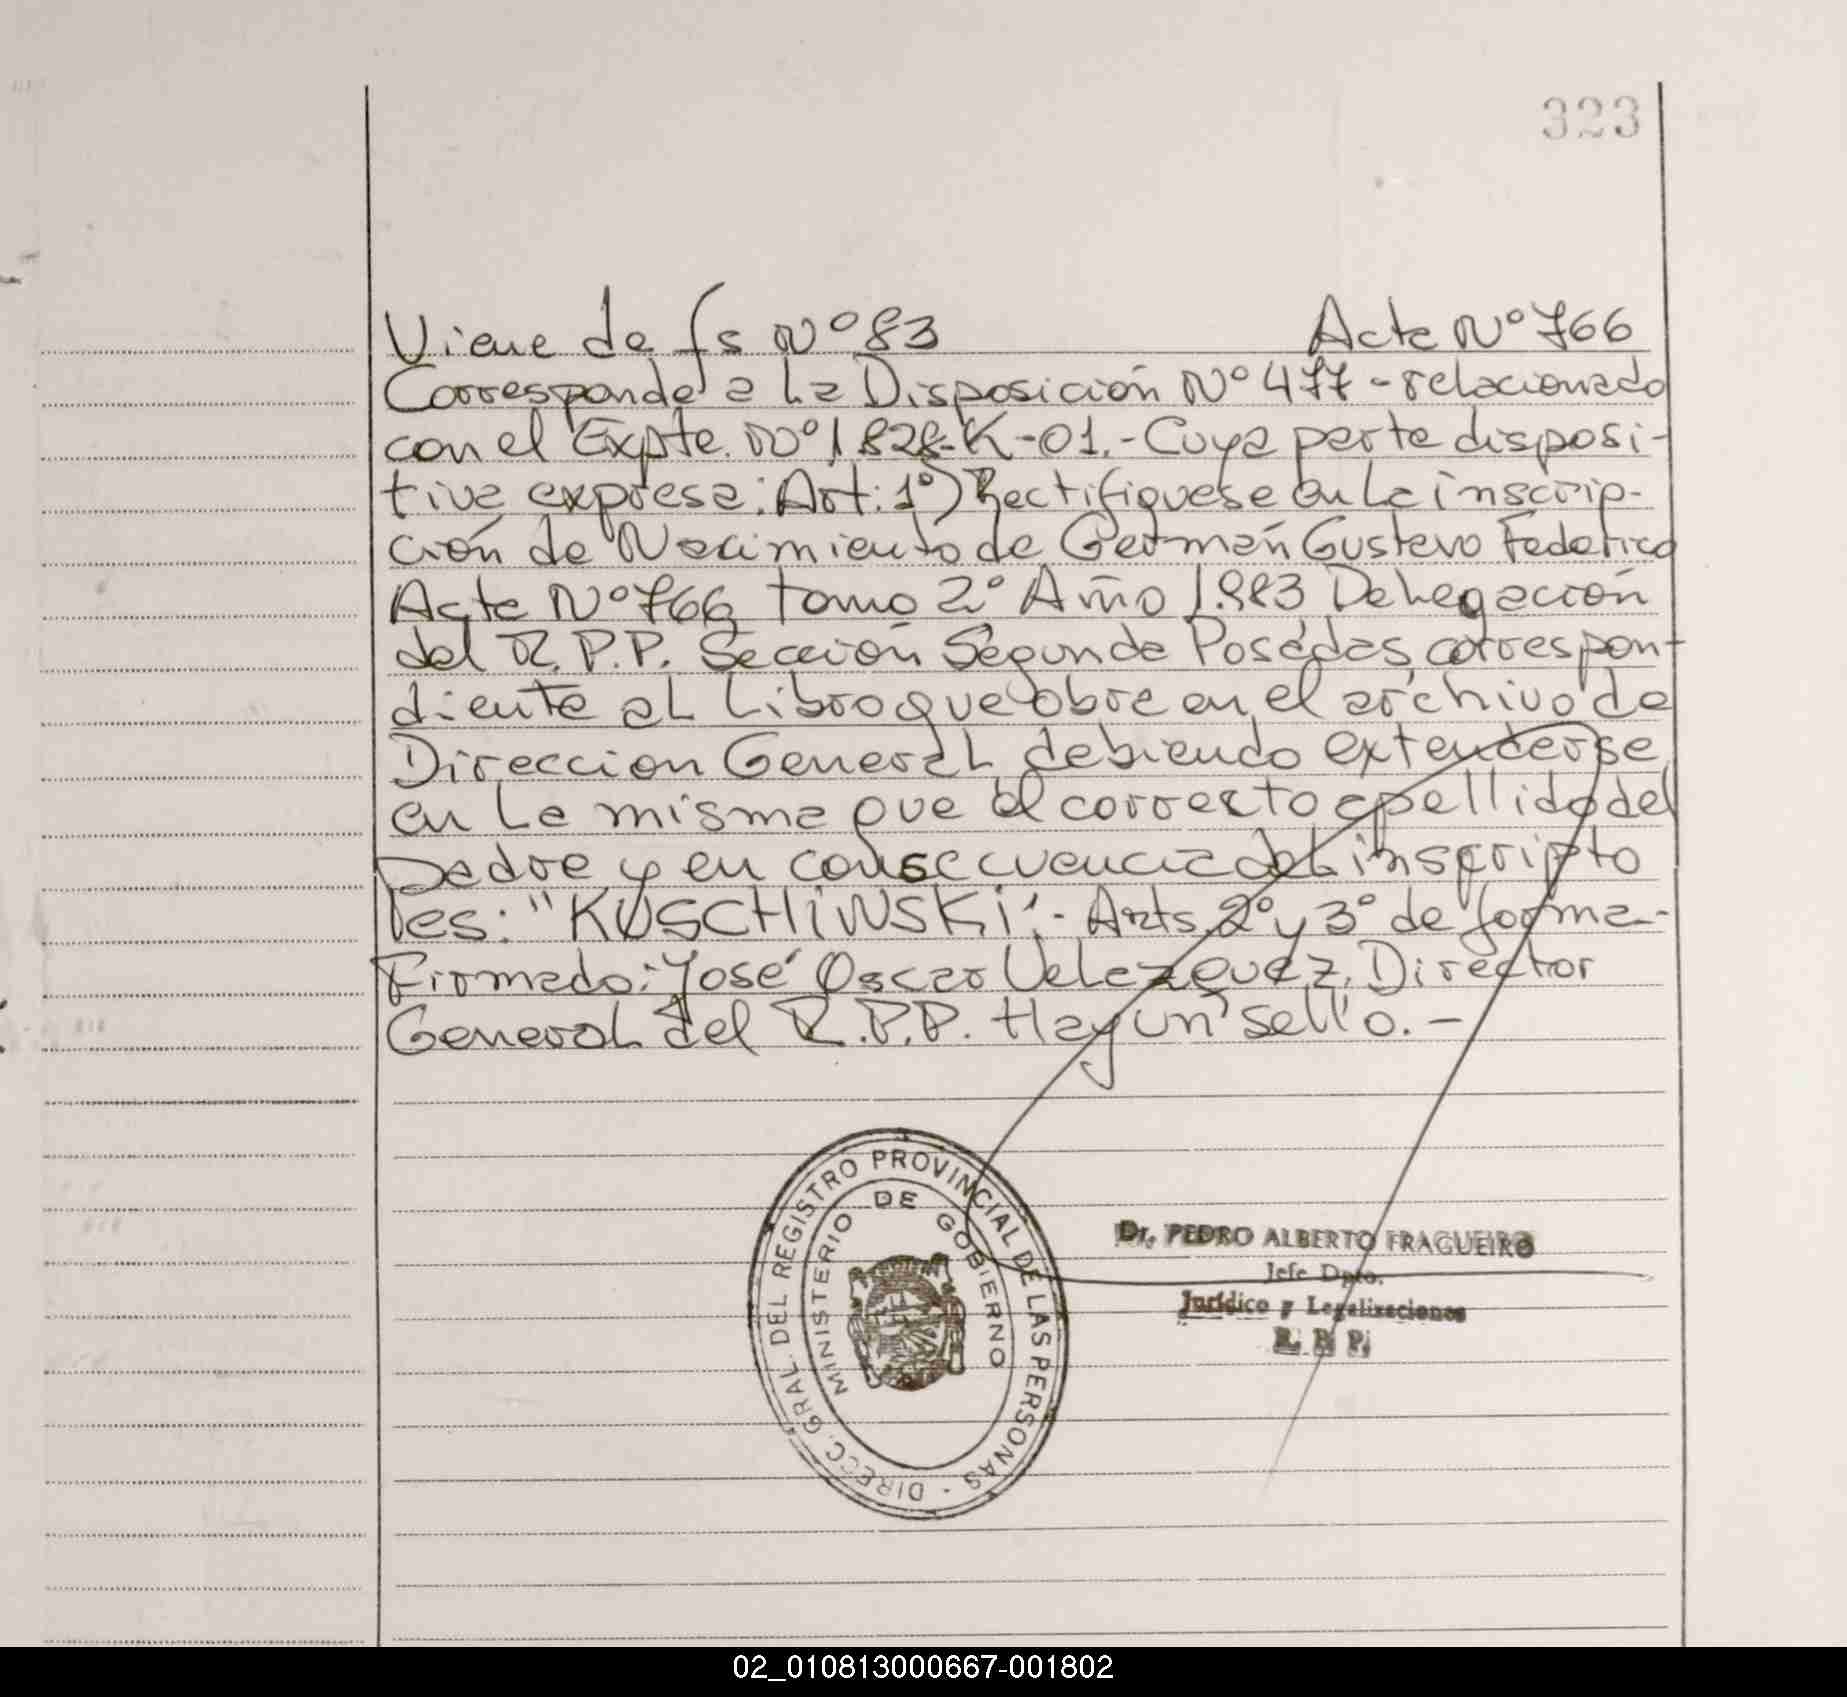 323
Viene de fs Nº 83 Acta Nº 766
Corresponde a la Disposición Nº 477 - relacionado
con el Expte. Nº 1828-K-01.- Cuya parte disposi-
tiva expresa: Art: 1º) Rectifiquese en la inscrip-
ción de Nacimiento de Germán Gustavo Federico
Acta Nº 766 tomo 2º Año 1.983 Delegación
del R.P.P. Sección Segunda Posadas, correspon-
diente al Libro que obra en el archivo de
Direccion General, debiendo extenderse
en la misma que el correcto apellido del
padre y en consecuencia del inscripto
es: "KUSCHiNSKi".- Arts. 2º y 3º de forma.-
Firmado: José Oscar Velazquez. Director
General del R.P.P. Hay un sello.-
DIRECC. GRAL. DEL REGISTRO PROVINCIAL DE LAS PERSONAS -
MINISTERIO DE GOBIERNO
Dr. PEDRO ALBERTO FRAGUEIRO
Jefe Dpto.
Jurídico y Legalizaciones
R. P. P.
02_010813000667-001802